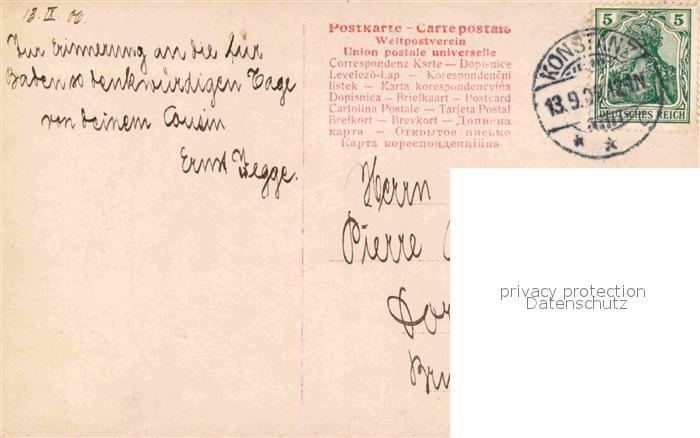 13. IX. 06
Zur Erinnerung an die für
Baden so denkwürdigen Tage
von deinem Cousin
Ernst Wegge.
Postkarte – Carte postale
Weltpostverein
Union postale universelle
Correspondenz-Karte — Dopisnice
Levelező-Lap — Korespondenční
lístek — Karta korespondencyjna
Dopisnica — Briefkaart — Postcard
Cartolina Postale — Tarjeta Postal
Brefkort — Brevkort — Дописна
карта — Открытое письмо
Карта кореспонденційна
5 5
DEUTSCHES REICH
KONSTANZ
13.9.06
Herrn
Pierre
privacy protection
Datenschutz